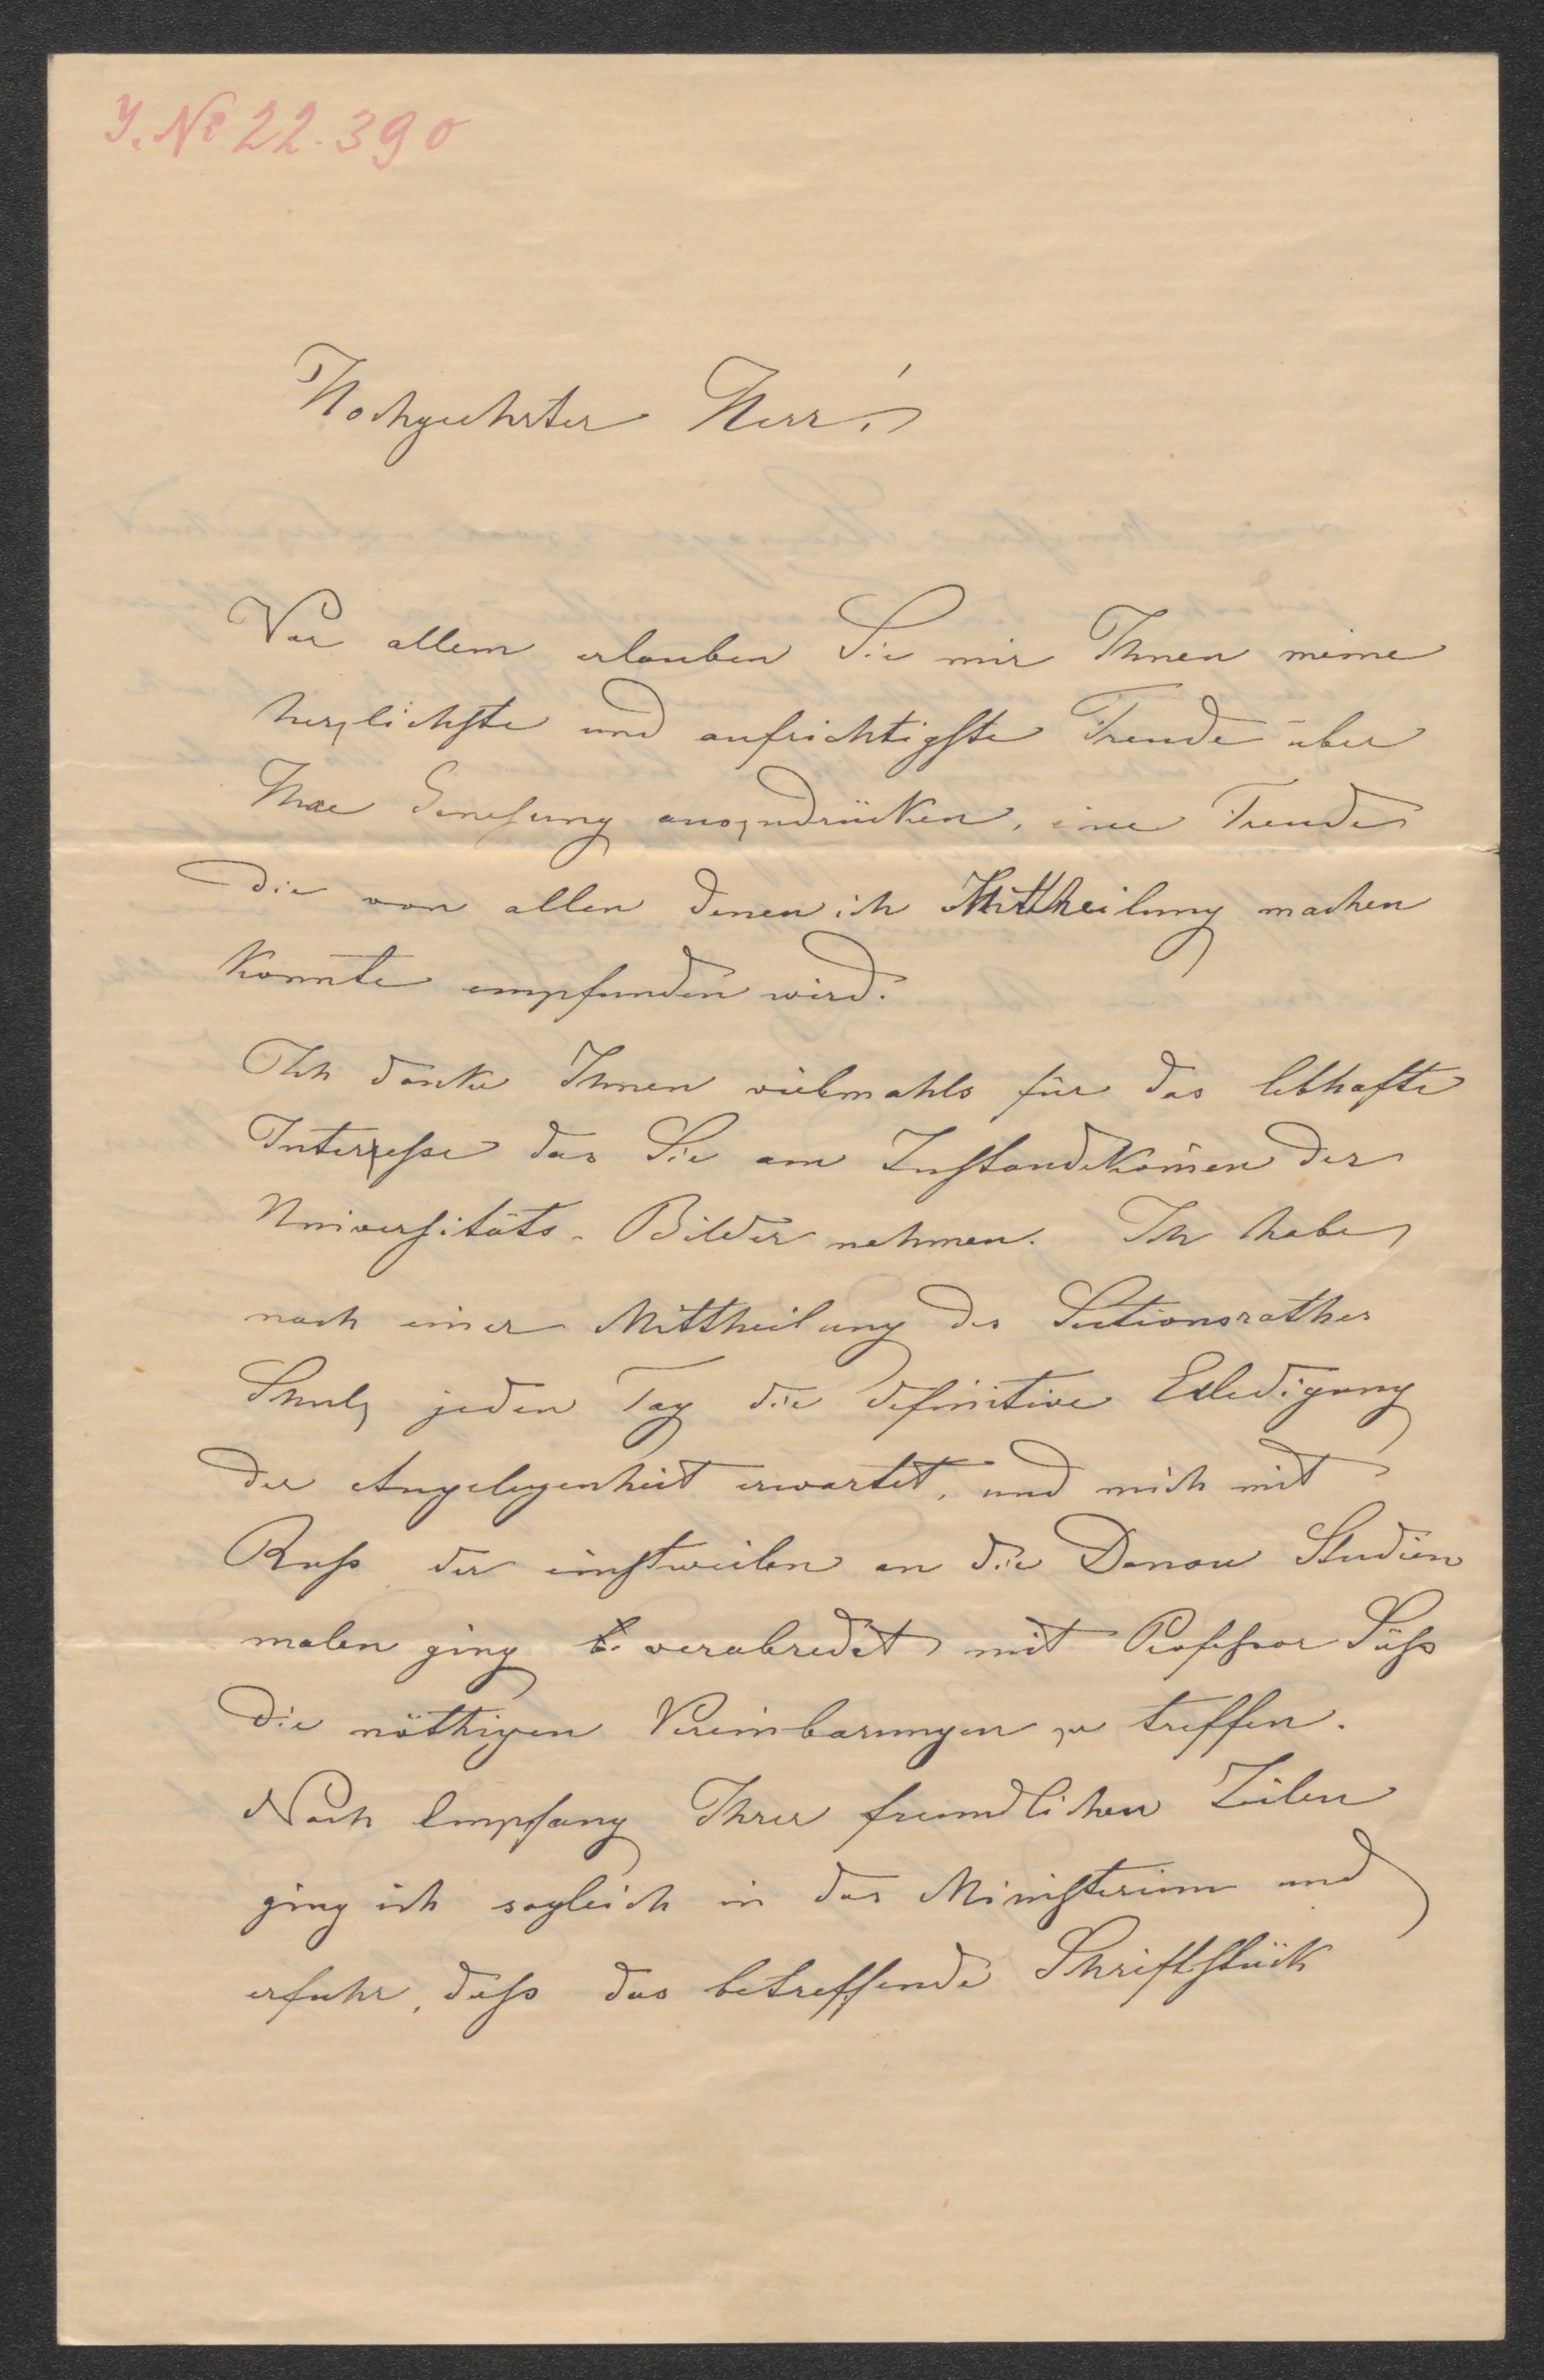 J. № 22.390
Hochgeehrter Herr!
Vor allem erlauben Sie mir Ihnen meine
herzlichste und aufrichtigste Freude über
Ihre Genesung auszudrücken, eine Freude
die von allen denen ich Mittheilung machen
konnte empfunden wird.
Ich danke Ihnen vielmahls für das lebhafte
Interesse das Sie am Zustandekom̄en der
Universitäts-Bilder nehmen. Ich habe
nach einer Mittheilung des Sectionsrathes
jeden Tag die definitive Erledigung
der Angelegenheit erwartet, und mich mit
Russ der einstweilen an die Donau Studien
malen ging verabredet mit Professor Süss
die nöthigen Vereinbarungen zu treffen.
Nach Empfang Ihrer freundlichen Zeilen
ging ich sogleich in das Ministerium und
erfuhr, dass das betreffende Schriftstück